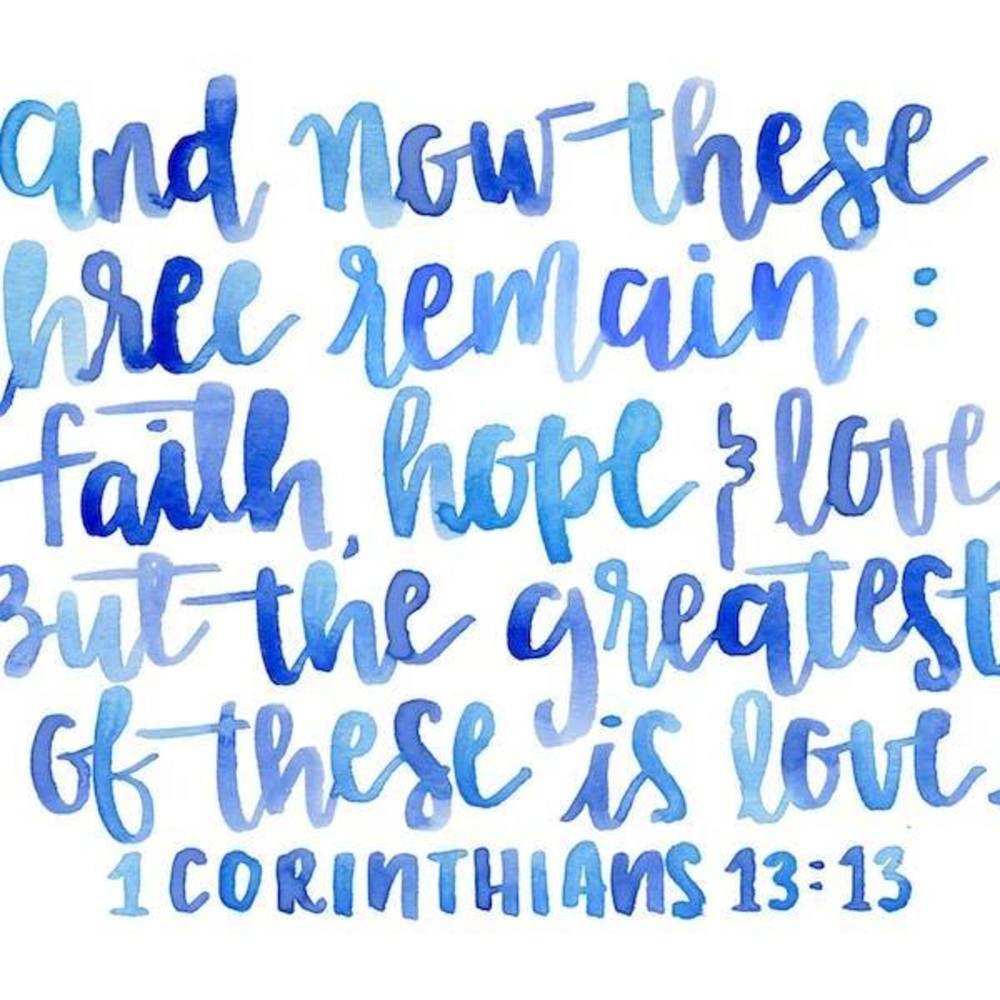 and now these
hree remain :
faith, hope & love
But the greatest
of these is love.
1 CORINTHIANS 13:13